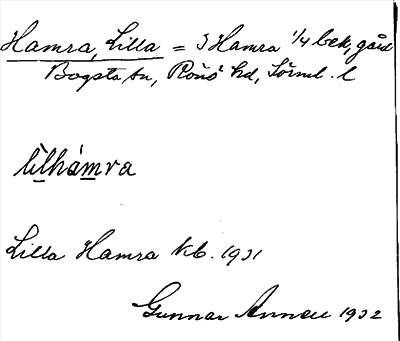 Hamra, Lilla = 3 Hamra 1/4 bek, gård
Bogsta sn, Rönö hd, Södml. l
lìlhámra
Lilla Hamra kb. 1931
Gunnar Annell 1932